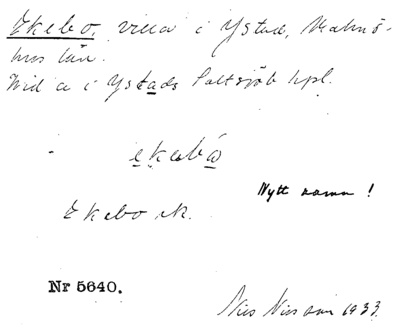 Ekebo, villa i Ystad, Malmö-
hus län.
Vid a i Ystads Saltsjöb hpl.
ekabó
Nytt namn!
Ekebo
Nr 5640.
Nils Nilsson 1933.